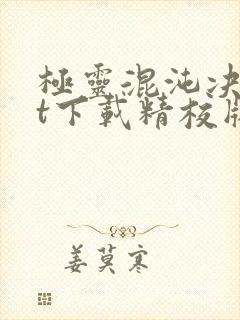 極靈混沌决
t下載精校版
姜莫寒